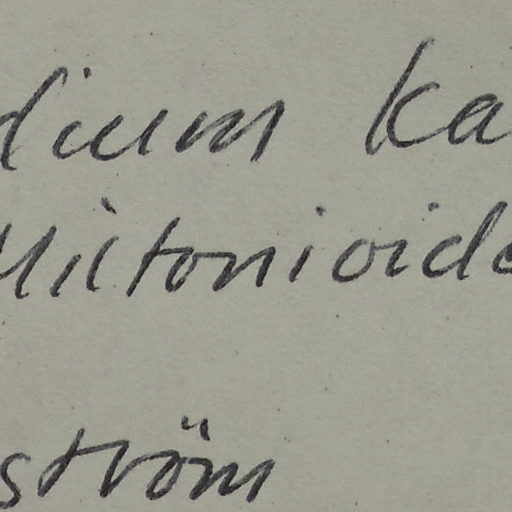 dium ka
Miltonioide
ström